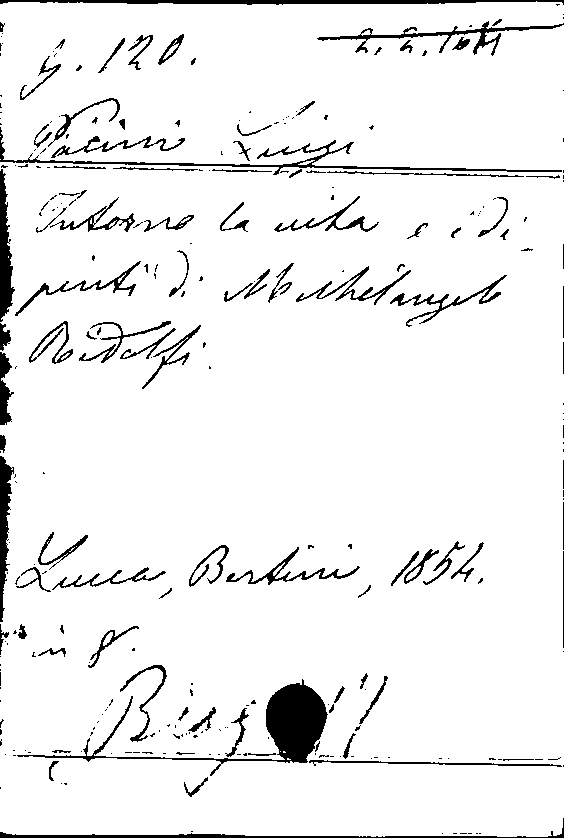 G. 120.
Pacini Luigi
Intorno la vita e i di-
pinti di Michelangelo
Ridolfi.
Lucca, Bertini, 1854.
in 8.